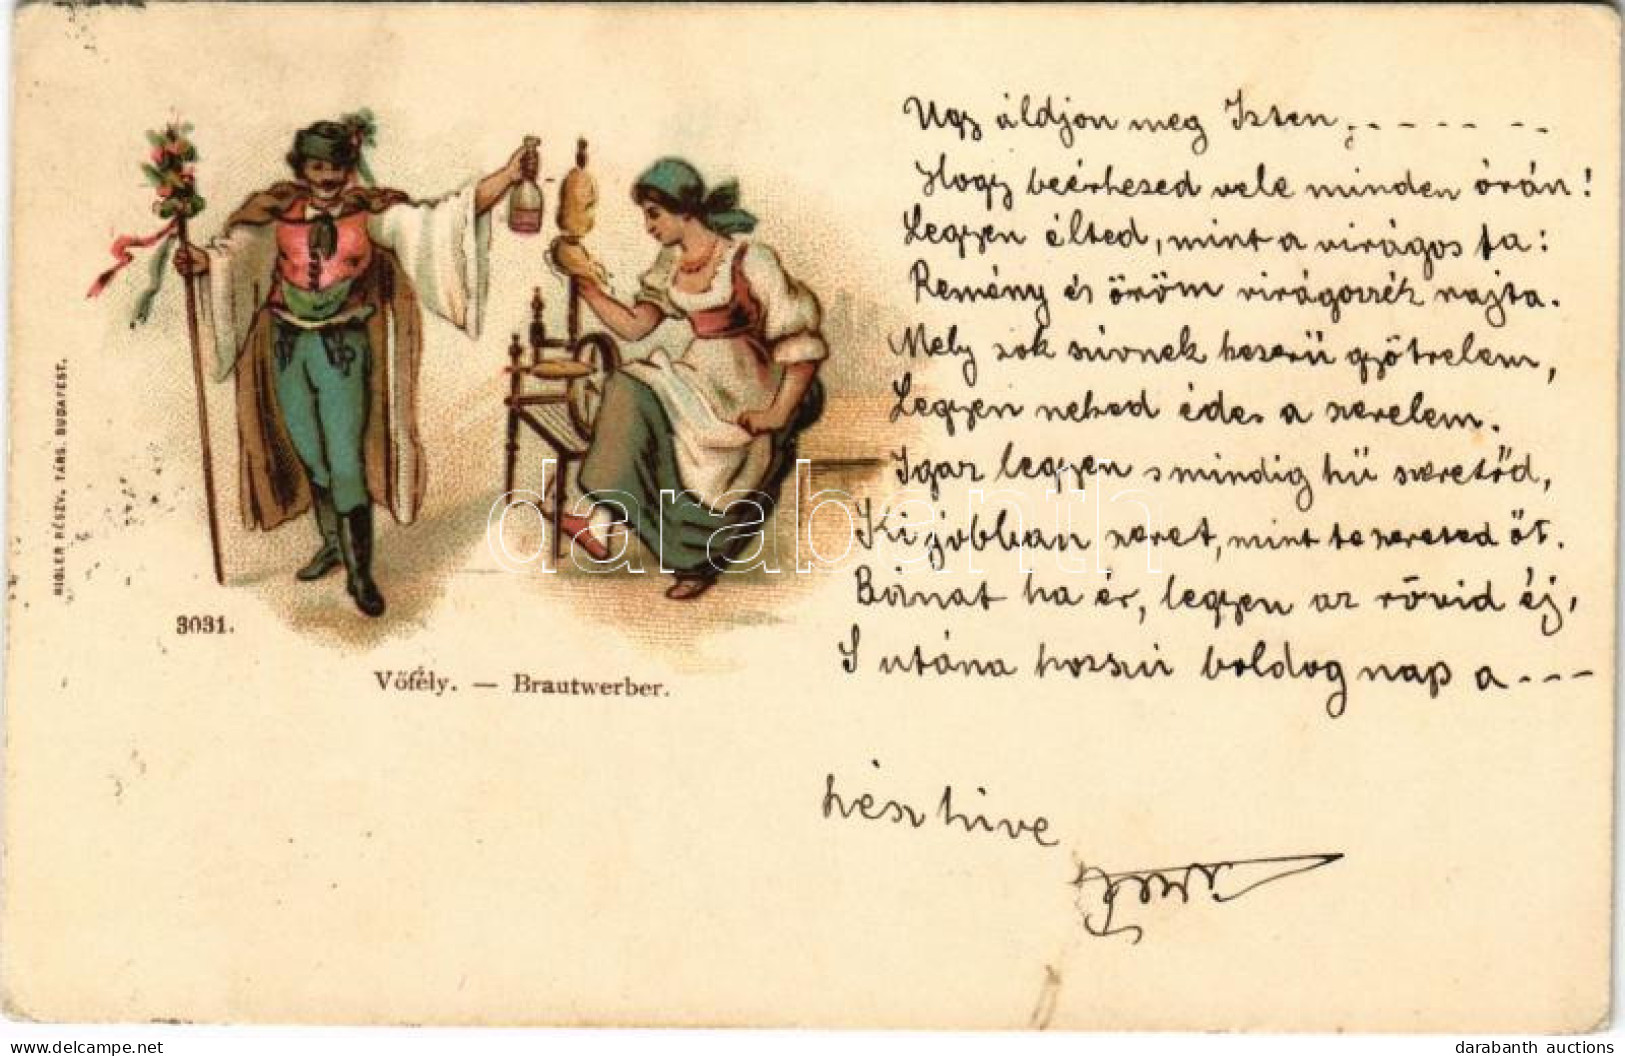 Ugy áldjon meg Isten, - - - - - -
Hogy beérhesed vele minden órán!
Legyen élted, mint a virágos fa:
Remény és öröm virágozzék rajta.
Mely sok szívnek keserü gyötrelem,
Legyen neked édes a szerelem.
Igaz legyen s mindig hü szeretőd,
Ki jobban szeret, mint te szereted őt.
Bánat ha ér, legyen az rövid éj,
S utána hosszú boldog nap a - - -
kész híve
RIGLER RÉSZV. TÁRS. BUDAPEST.
3031.
Vőfély. — Brautwerber.
darabanth
delcampe.net
darabanth auctions